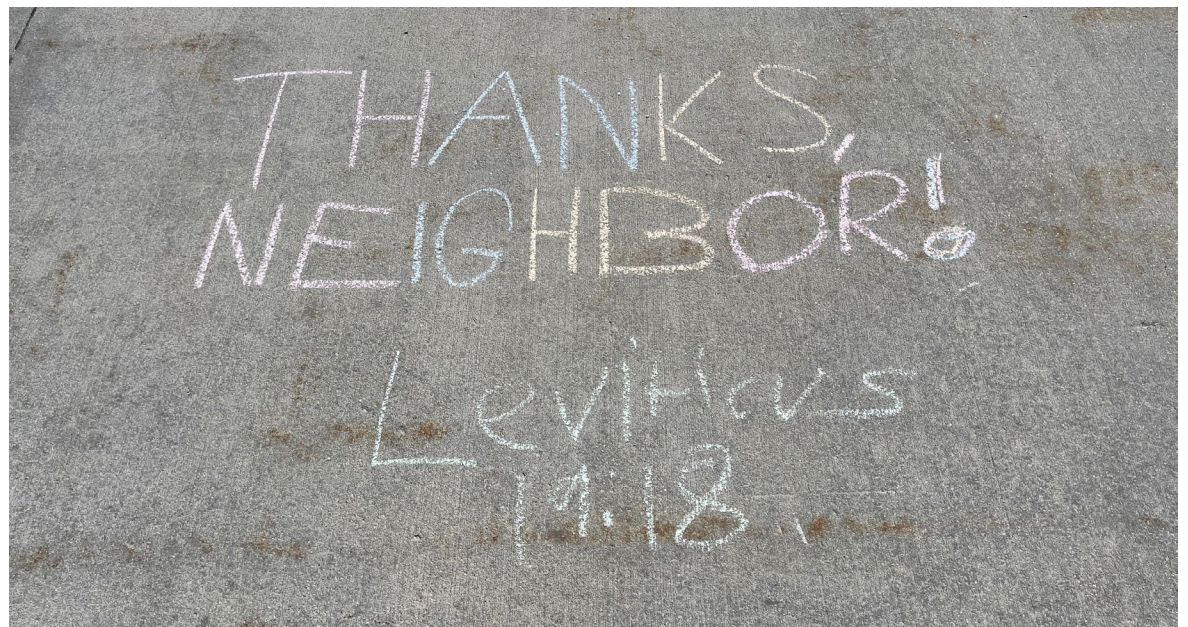 THANKS,
NEIGHBOR!
Leviticus
19:18